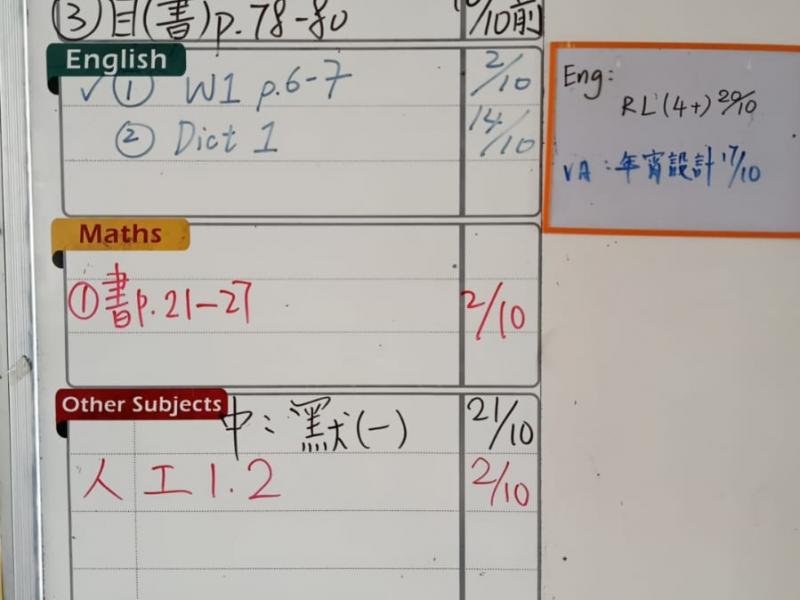 ③目(書)p.78-80
10/10前
English
✓① W1 p.6-7 2/10
② Dict 1 14/10
Eng:
RL(4+) 20/10
VA:年宵設計 17/10
Maths
①書p.21-27 2/10
Other Subjects
中:默(一) 21/10
人 工1.2 2/10